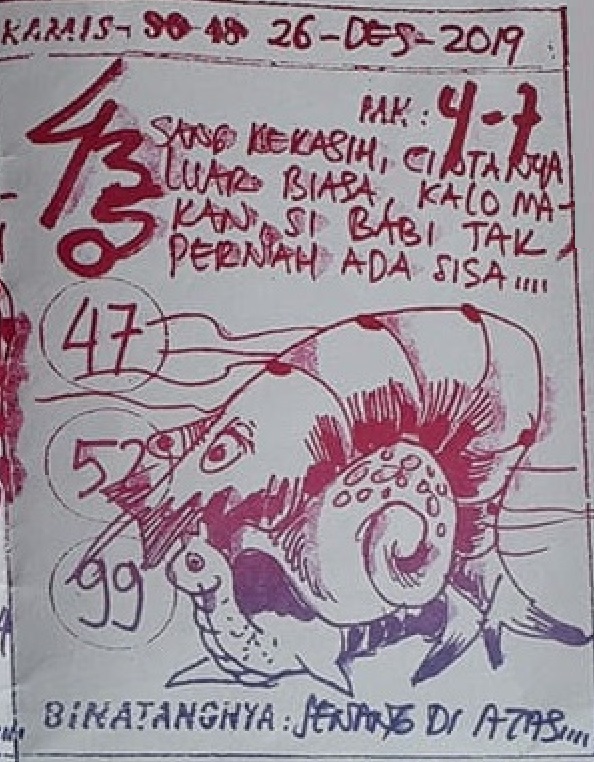 KAMIS- 26-DES-2019
PAK: 4-7
43
05
SANG KEKASIH, CINTANYA
LUAR BIASA, KALO MA-
KAN, SI BABI TAK
PERNAH ADA SISA....
47
52
99
BINATANGNYA: DI ATAS....